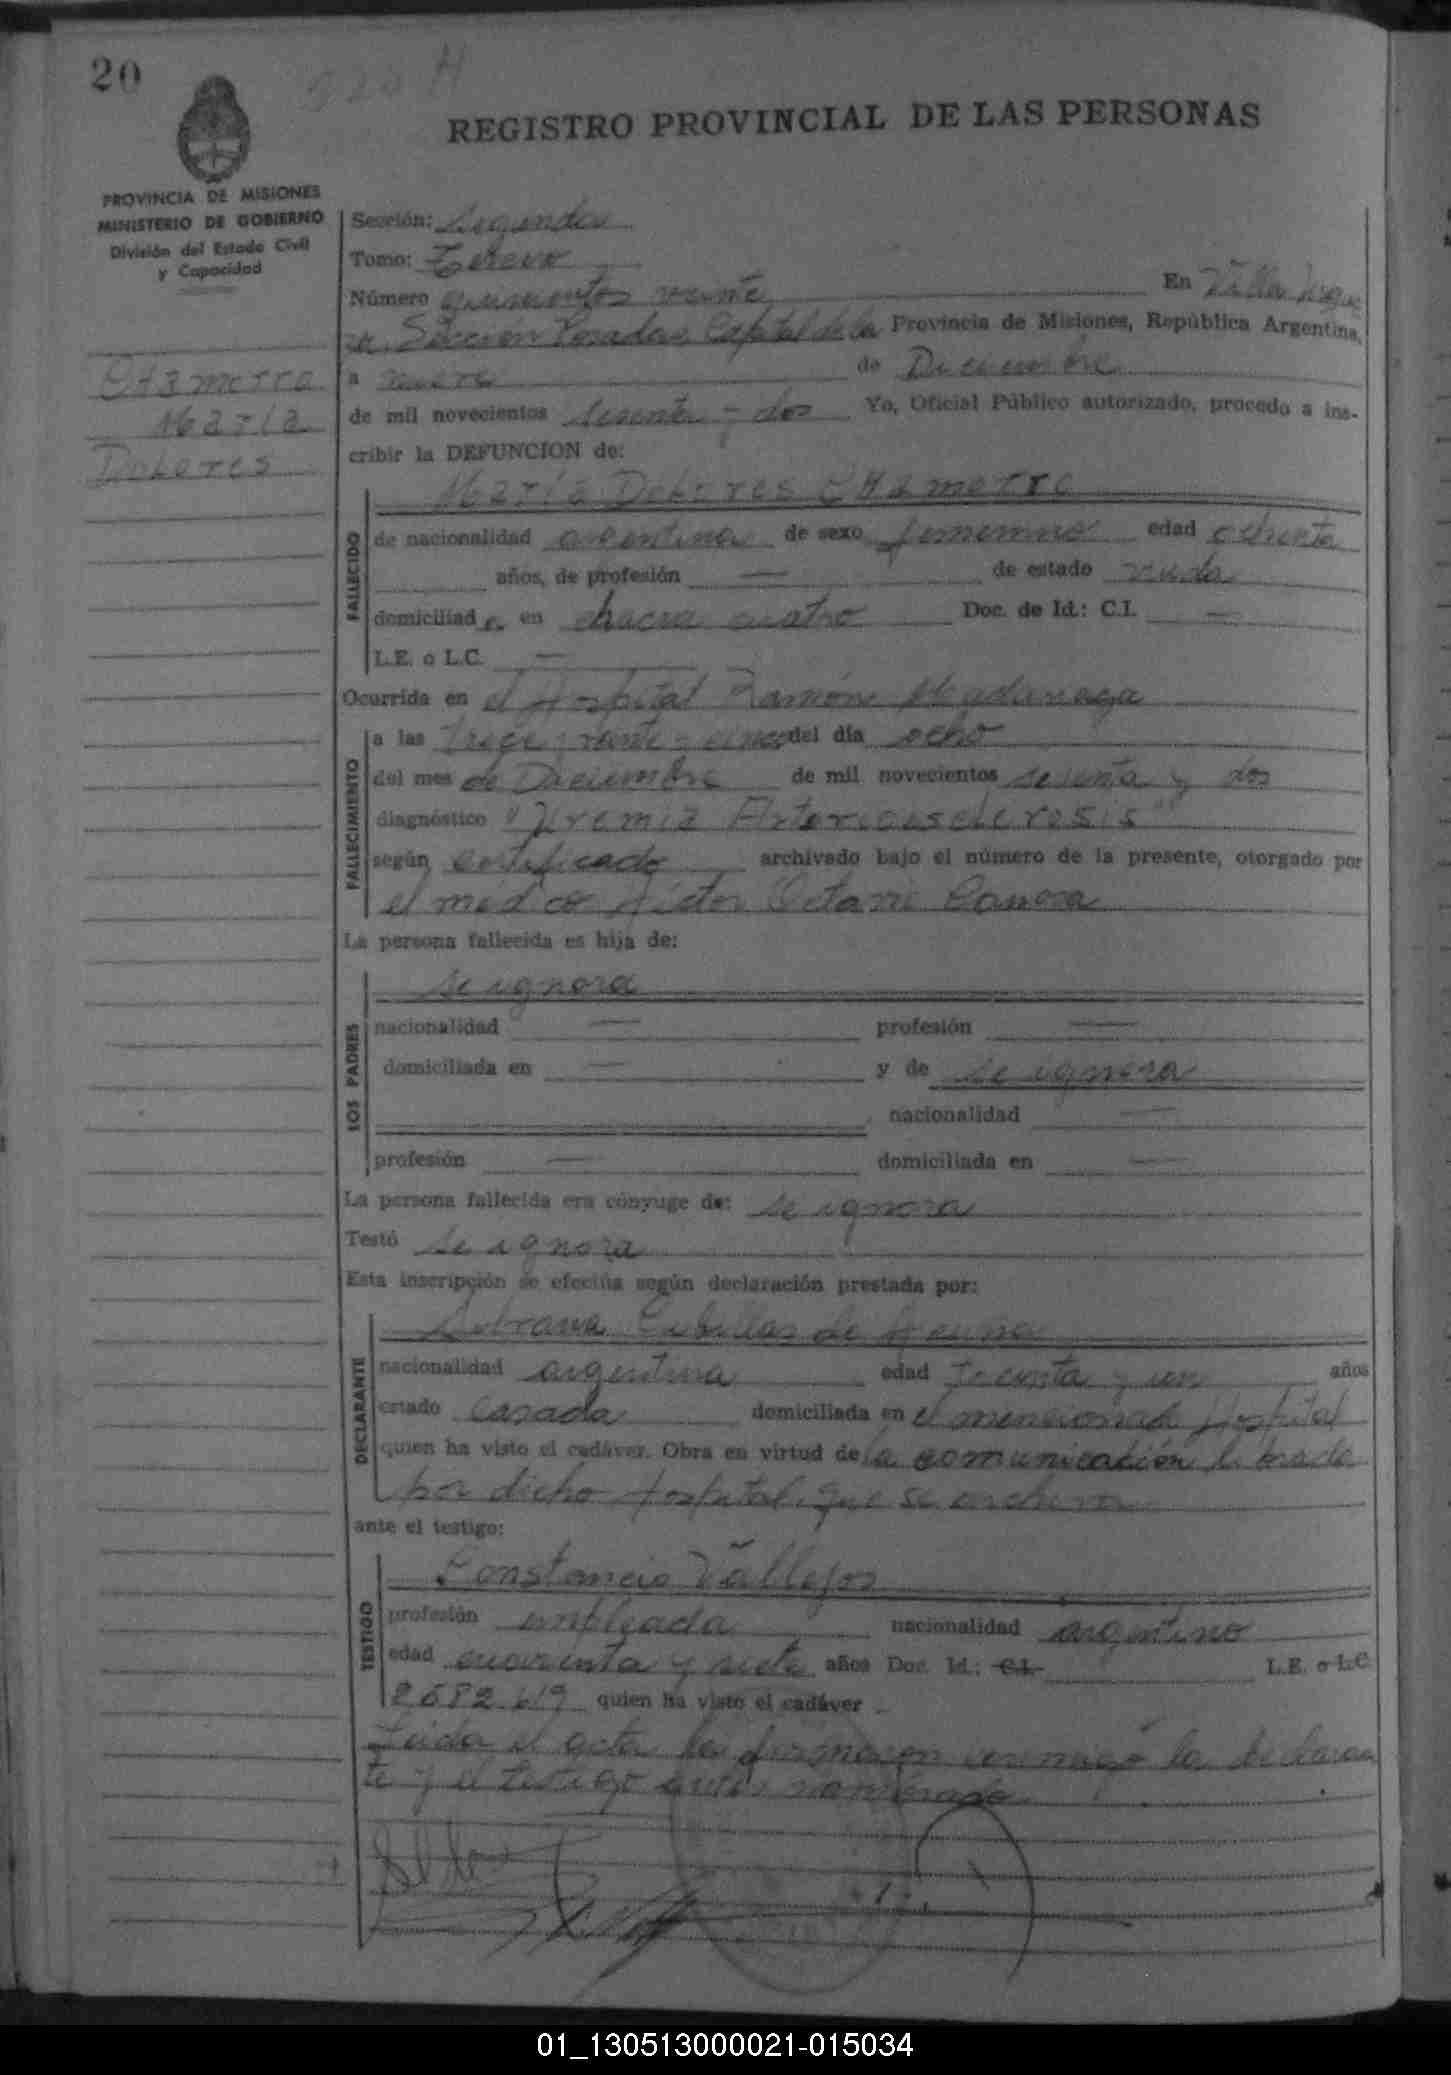 20
REGISTRO PROVINCIAL DE LAS PERSONAS
PROVINCIA DE MISIONES
MINISTERIO DE GOBIERNO
División del Estado Civil
y Capacidad
Sección: Segunda
Tomo: Tercero
Número quinientos veinte En Villa Urquiza
Sección Posadas Capital de la Provincia de Misiones, República Argentina,
a nueve de Diciembre
de mil novecientos sesenta y dos Yo, Oficial Público autorizado, procedo a ins-
cribir la DEFUNCION de:
Maria
Dolores
Maria Dolores
FALLECIDO
de nacionalidad argentina de sexo femenino edad ochenta
años, de profesión — de estado viuda
domiciliada en chacra cuatro Doc. de Id.: C.I. —
L.E. o L.C. —
Ocurrida en el Hospital Ramón Madariaga
FALLECIMIENTO
a las trece y veinte y cinco del día ocho
del mes de Diciembre de mil novecientos sesenta y dos
diagnóstico "Uremia Arterioesclerosis"
según certificado archivado bajo el número de la presente, otorgado por
el médico Octavio
La persona fallecida es hija de:
LOS PADRES
se ignora
nacionalidad — profesión —
domiciliada en — y de se ignora
nacionalidad —
profesión — domiciliada en —
La persona fallecida era cónyuge de: se ignora
Testó se ignora
Esta inscripción se efectúa según declaración prestada por:
DECLARANTE
Cubillas de Acuña
nacionalidad argentina edad treinta y un años
estado casada domiciliada en el mencionado Hospital
quien ha visto el cadáver. Obra en virtud de la comunicación librada
por dicho Hospital que se archiva
ante el testigo:
TESTIGO
Constancio Vallejos
profesión empleado nacionalidad argentino
edad cuarenta y siete años Doc. Id.: C.I. L.E. o L.C.
2682.619 quien ha visto el cadáver
Leida el acta la firmaron conmigo la declaran
te y el testigo antes nombrado
01_130513000021-015034